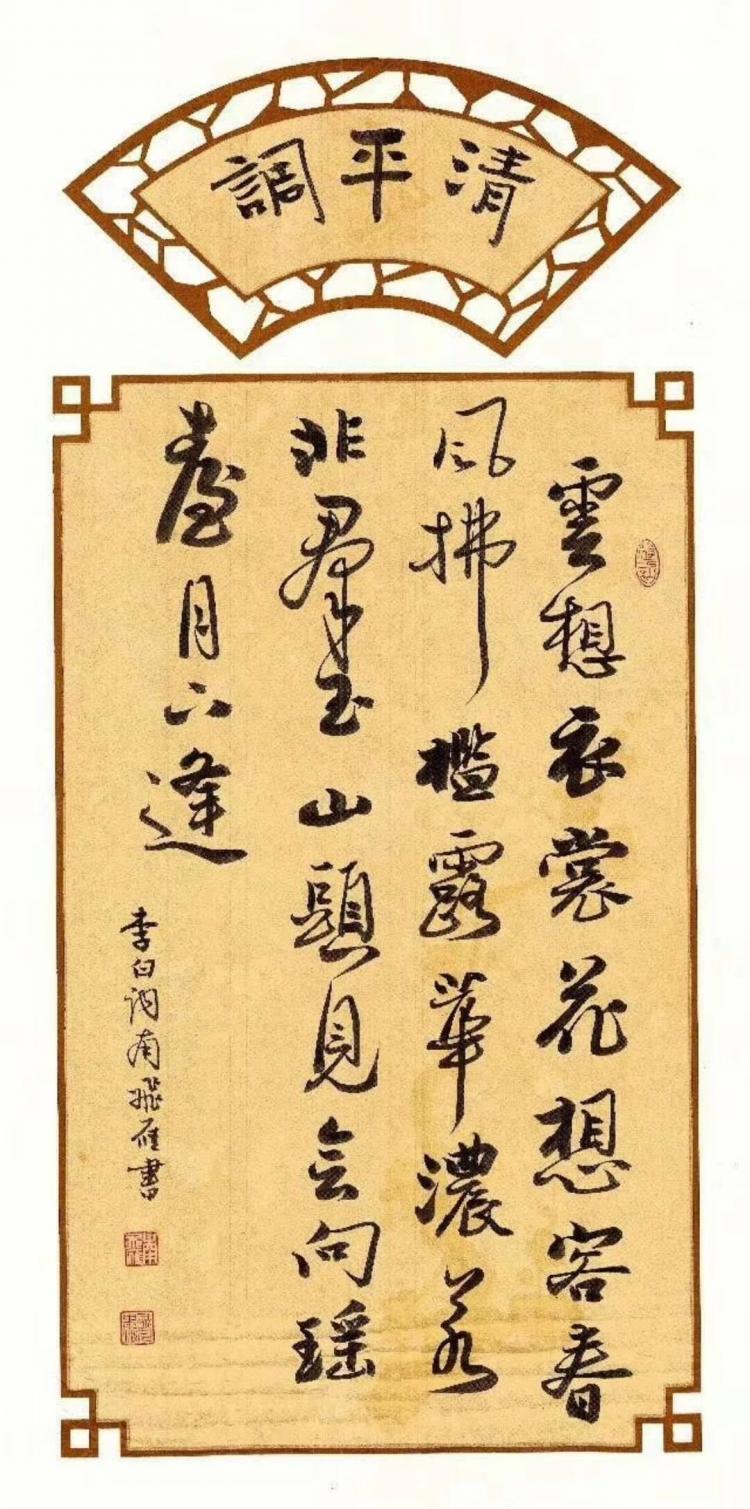 清平調
雲想衣裳花想容春
风拂檻露華濃若
非羣玉山頭見会向瑶
臺月下逢
李白词南飛雁書